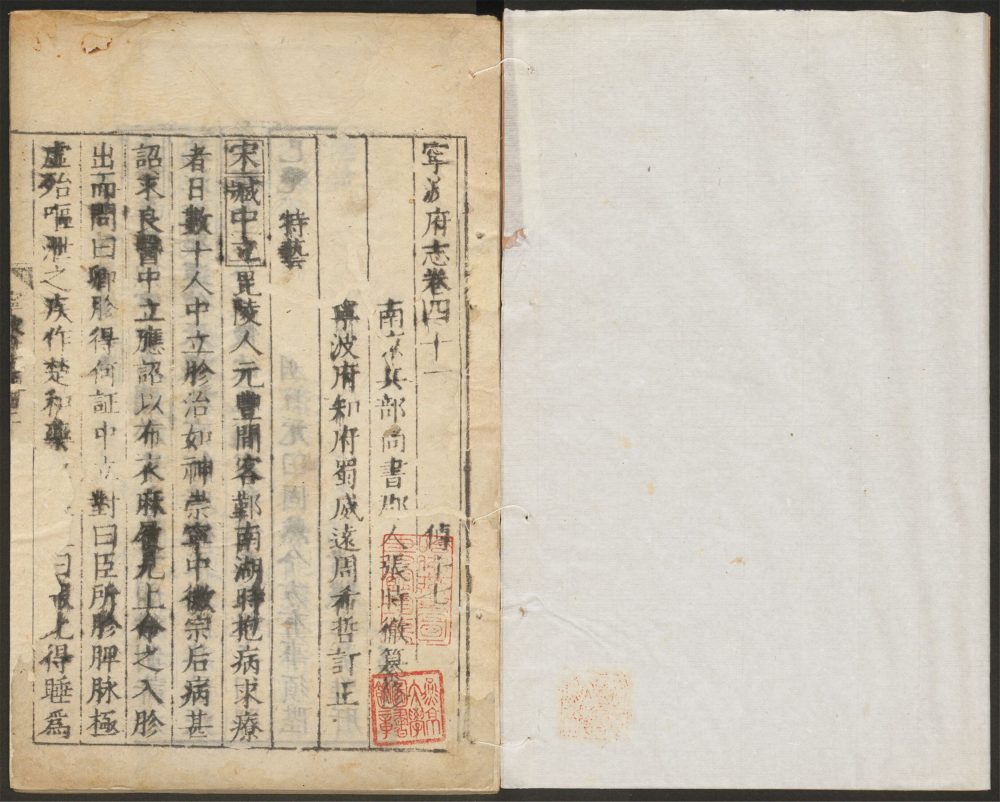 寧波府志卷四十一
傳十七
南京兵部尚書鄞人張時徹纂修
寧波府知府蜀威遠周希哲訂正
特藝
宋臧中立毘陵人元豐間客鄞南湖時抱病求療
者日數十人中立胗治如神崇寧中徽宗后病甚
詔求良醫中立應詔以布衣麻屨見上命之入胗
出而問曰卿胗得何証中立對曰臣所胗脾脉極
虛殆嘔泄之疾作楚和藥 曰 得睡爲
燕京大學圖書館章